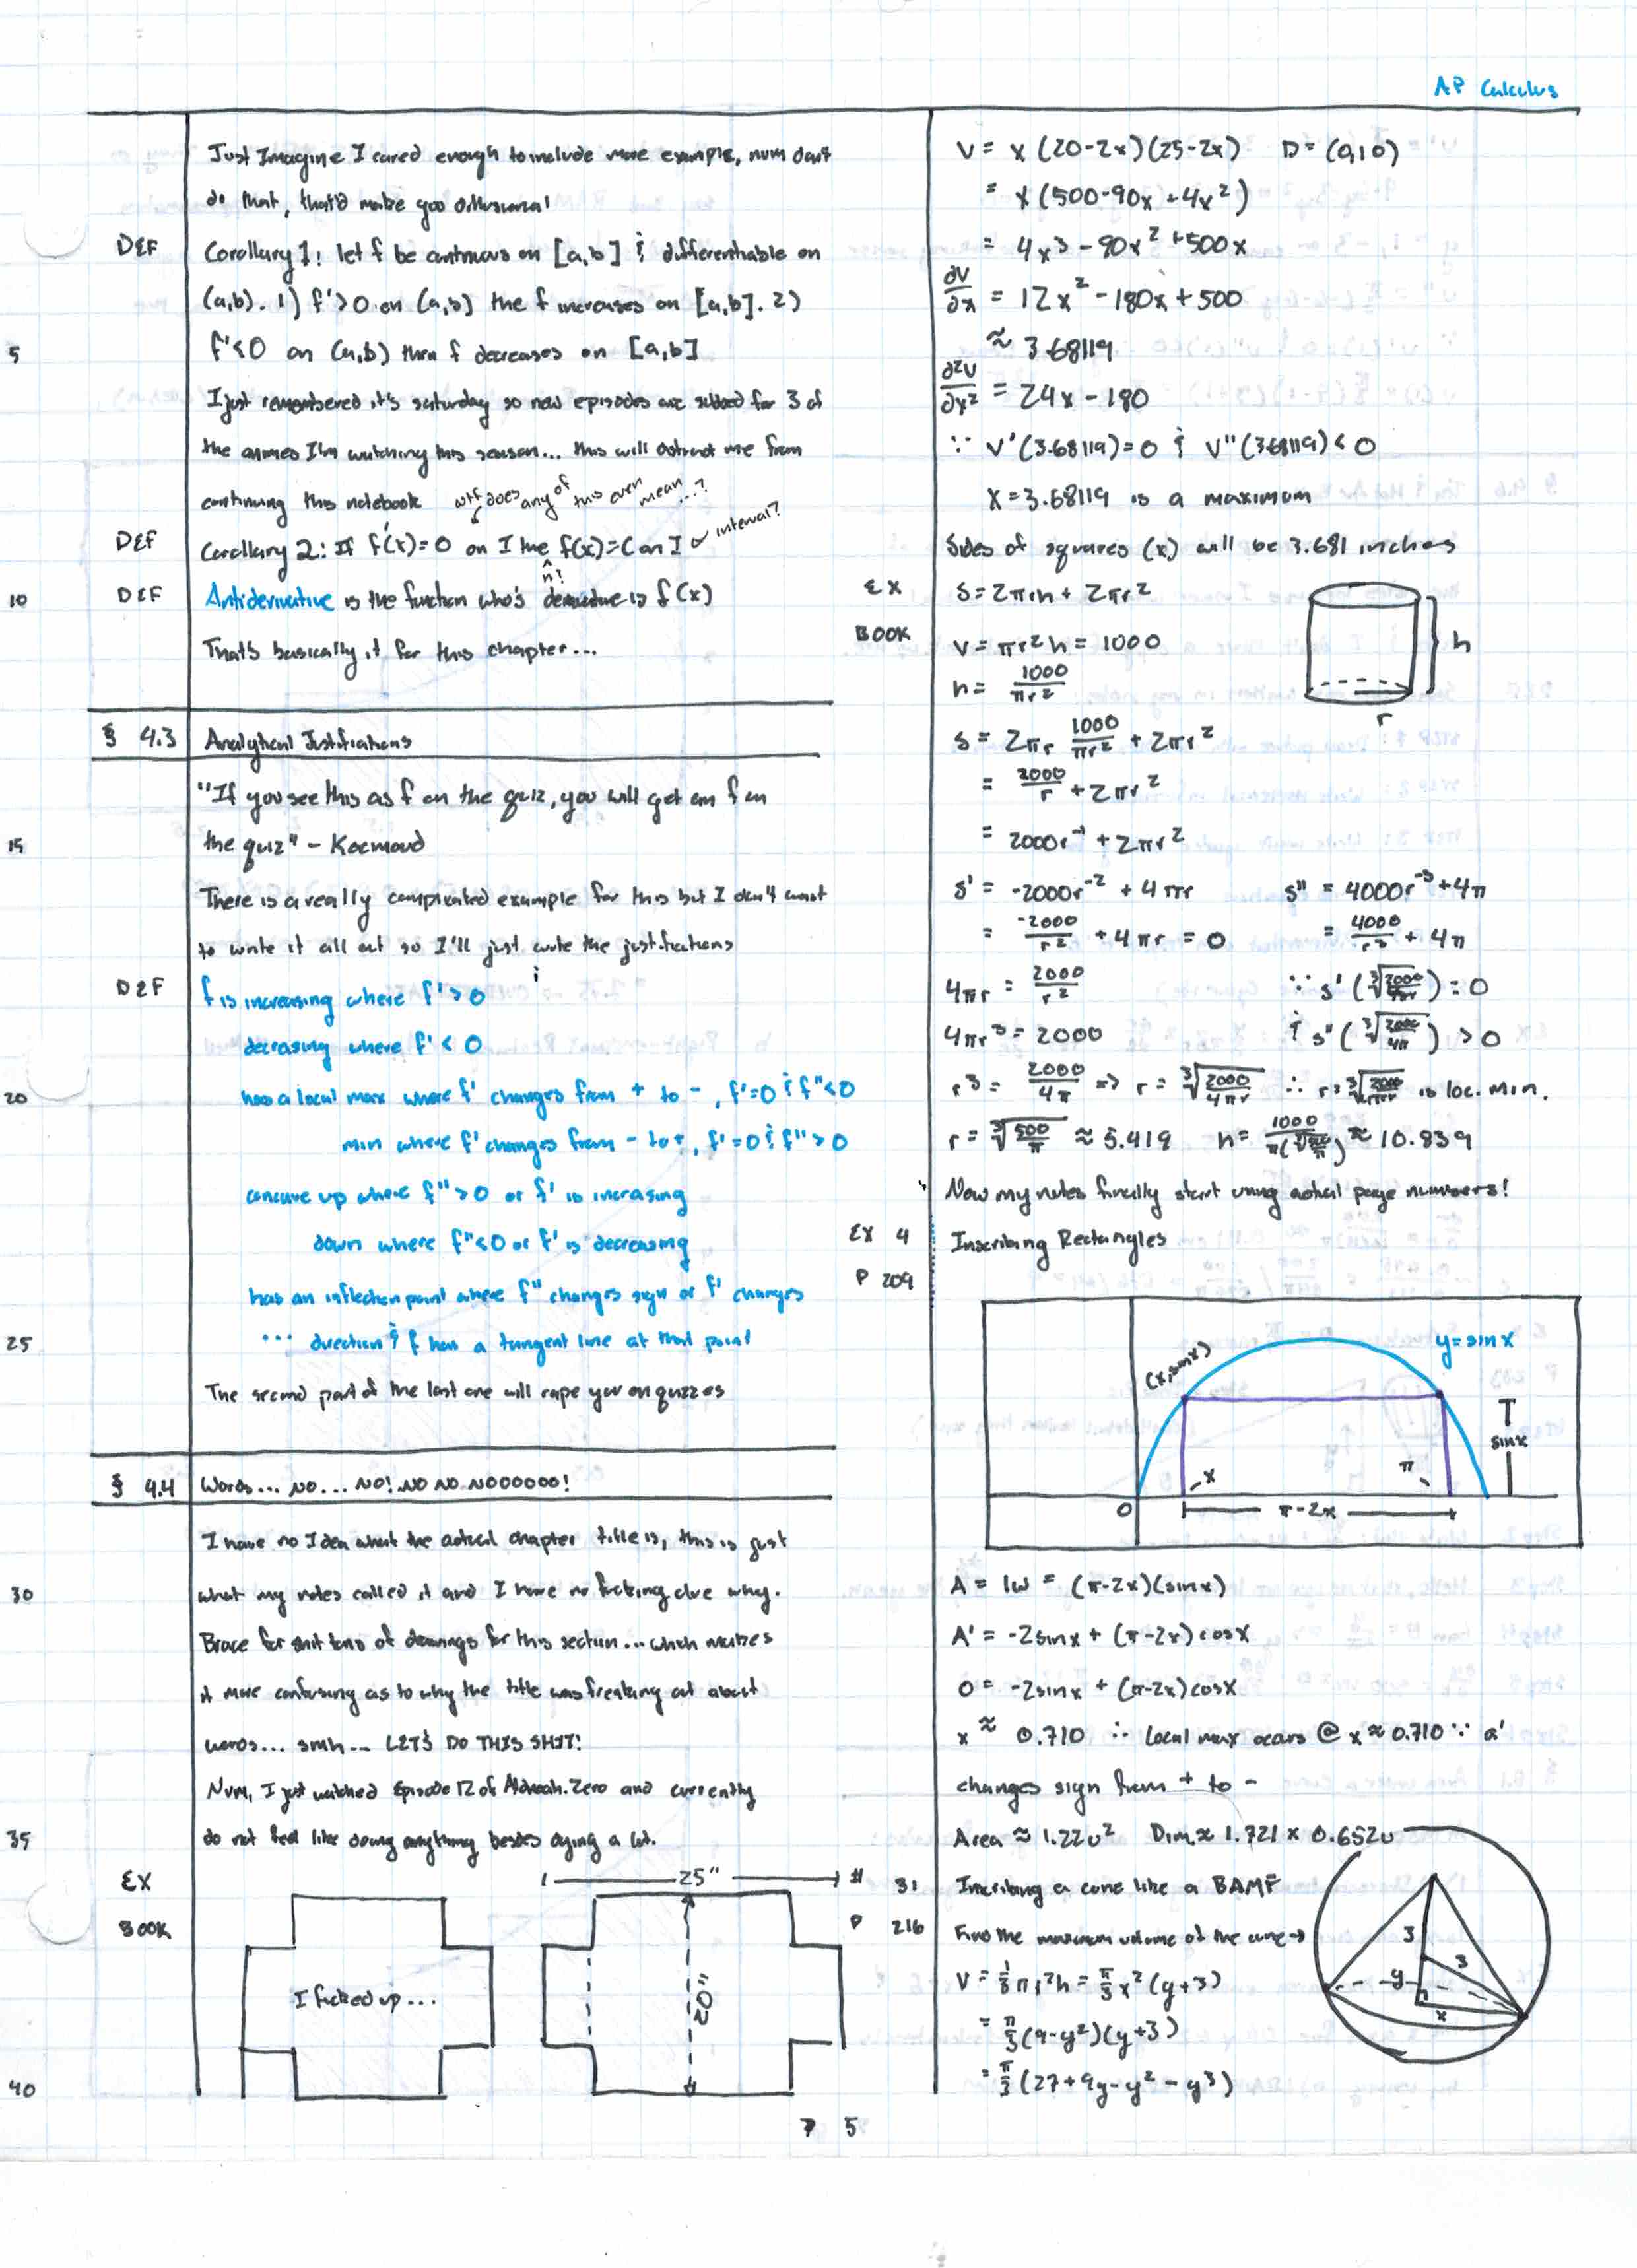 AP Calculus
Just Imagine I cared enough to include more example, num don't
do that, that'd make you delusional
DEF Corollary 1: let f be continuous on [a,b] & differentiable on
(a,b). 1) f'>0 on (a,b) the f increases on [a,b]. 2)
5 f'<0 on (a,b) then f decreases on [a,b]
I just remembered it's saturday so new episodes are subbed for 3 of
the animes I'm watching this season... this will distract me from
continuing this notebook wtf does any of this even mean...?
DEF Corollary 2: If f'(x)=0 on I the f(x)=C on I interval?
n!
10 DEF Antiderivative is the function who's derivative is f(x)
That's basically it for this chapter...
§ 4.3 Analytical Justifications
"If you see this as f on the quiz, you will get an f on
15 the quiz" - Kocmoud
There is a really complicated example for this but I don't want
to write it all out so I'll just write the justifications
DEF f is increasing where f'>0
decrasing where f'<0
20 has a local max where f' changes from + to -, f'=0 & f"<0
min where f' changes from - to +, f'=0 & f">0
concave up where f">0 or f' is incrasing
down where f"<0 or f' is decreasing
has an inflection point where f" changes sign or f' changes
25 ... direction & f has a tangent line at that point
The second part of the last one will rape you on quizzes
§ 4.4 Words... NO... NO! NO NO NOOOOOO!
I have no Idea what the actual chapter title is, this is just
30 what my notes called it and I have no fucking clue why.
Brace for shit tons of drawings for this section... which makes
it more confusing as to why the title was freaking out about
words... smh... LET'S DO THIS SHIT!
Num, I just watched Episode 12 of Aldnoah.Zero and currently
35 do not feel like doing anything besides dying a lot.
EX
BOOK
I fucked up...
25"
20"
40
V = x(20-2x)(25-2x) D = (0,10)
= x(500-90x+4x²)
= 4x³-90x²+500x
∂V/∂x = 12x²-180x+500
≈ 3.68119
∂²V/∂x² = 24x-180
∵ V'(3.68119)=0 & V"(3.68119)<0
X=3.68119 is a maximum
Sides of squares (x) will be 3.681 inches
EX S=2πrh+2πr²
BOOK V=πr²h=1000
h= 1000/πr²
h
r
S= 2πr 1000/πr² + 2πr²
= 2000/r + 2πr²
= 2000r⁻¹ + 2πr²
S' = -2000r⁻² + 4πr S" = 4000r⁻³+4π
= -2000/r² + 4πr = 0 = 4000/r³ + 4π
4πr = 2000/r² ∵ S'(∛(2000/4πr))=0
4πr³ = 2000 & S"(∛(2000/4π))>0
r³ = 2000/4π => r = ∛(2000/4πr) ∴ r=∛(2000/4πr) is loc. min.
r = ∛(500/π) ≈ 5.419 h= 1000/π(∛(500/π)) ≈ 10.839
Now my notes finally start using actual page numbers!
EX 4 Inscribing Rectangles
P 209
(x, sinx)
y=sinx
sinx
x
π
0
π-2x
A = lw = (π-2x)(sinx)
A' = -2sinx + (π-2x)cosx
0 = -2sinx + (π-2x)cosx
x ≈ 0.710 ∴ local max occurs @ x≈0.710 ∵ a'
changes sign from + to -
Area ≈ 1.22u² Dim ≈ 1.721 x 0.652u
# 31 Inscribing a cone like a BAMF
P 216 Find the maximum volume of the cone→
V = ⅓πr²h = π/3 x²(y+3)
= π/3 (9-y²)(y+3)
= π/3 (27+9y-y²-y³)
3
3
y
x
7 5